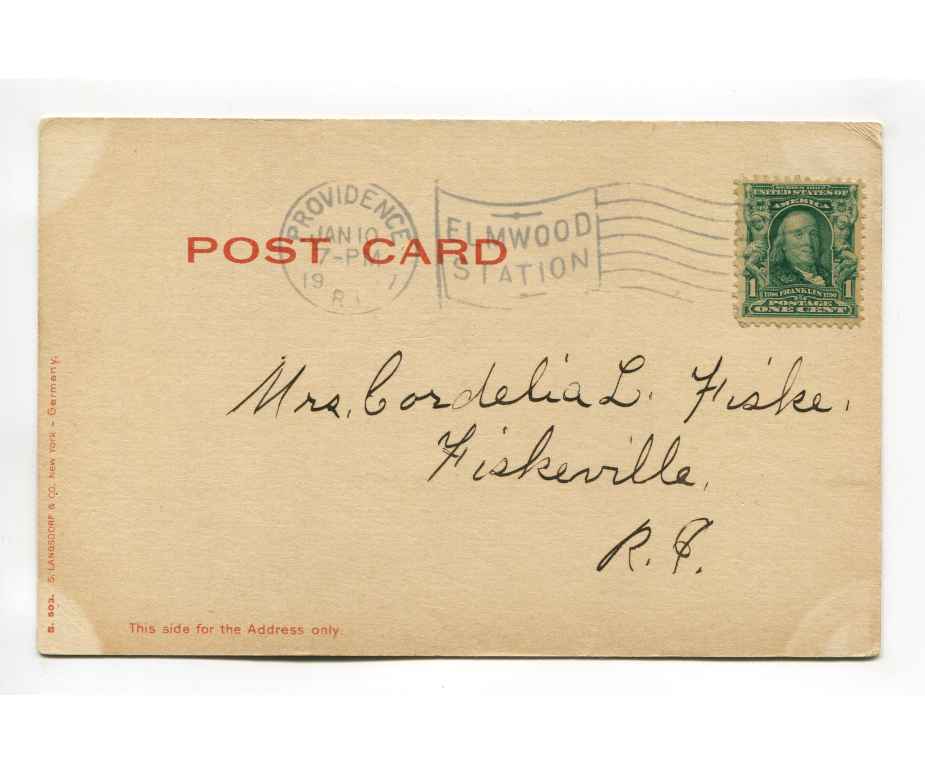 PROVIDENCE
JAN 10
7-PM
19 7
R.I.
ELMWOOD
STATION
SERIES 1902
UNITED STATES OF
AMERICA
1 1706 FRANKLIN 1790 1
POSTAGE
ONE CENT
POST CARD
Mrs. Cordelia L. Fiske.
Fiskeville.
R.I.
B. 503. S. LANGSDORF & CO. NEW YORK - Germany.
This side for the Address only.